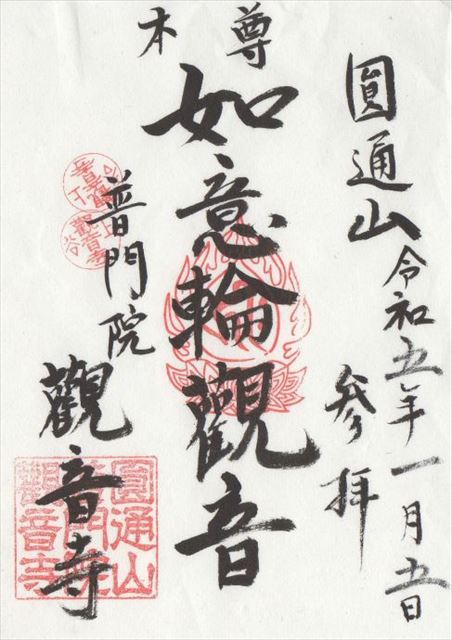 圓通山
令和五年一月五日
参拝
本尊
如意輪觀音
普門院
觀音寺
圓通山
普門院
觀音寺